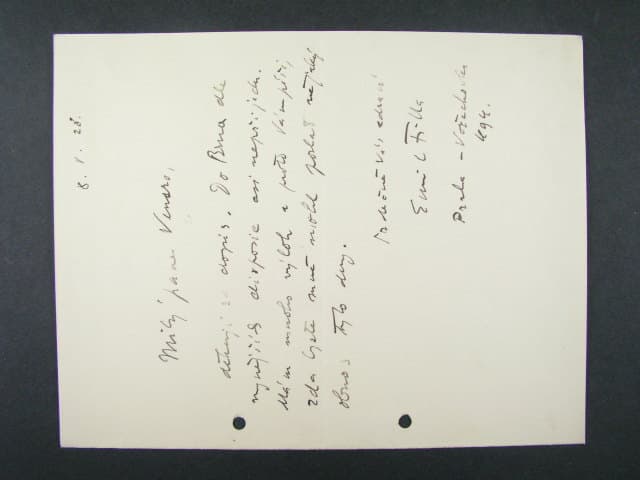 8. V. 28.
Milý pane Venero,
děkuji za dopis. Do Brna dle
nynějších disposic asi nepřijedu.
Mám mnoho výloh a proto Vám píši,
zda byste mně mohl poslat nějaký
obnos tyto dny.
Srdečně Vás zdraví
Emil Filla
Praha –